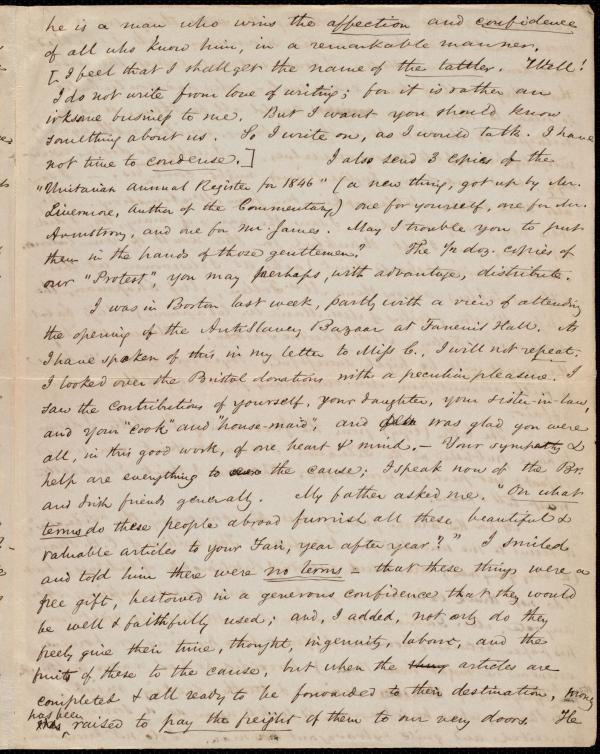 he is a man who wins the affection and confidence
of all who know him, in a remarkable manner.
[I feel that I shall get the name of the tattler. Well!
I do not write from love of writing; for it is rather an
irksome business to me. But I want you should know
something about us. So I write on, as I would talk. I have
not time to condense.] I also send 3 copies of the
"Unitarian Annual Register for 1846" (a new thing, got up by Mr.
Livermore, Author of the Commentary) one for yourself, one for Mr.
Armstrong, and one for Mr. James. May I trouble you to put
them in the hands of those gentlemen? The ½ doz. copies of
our "Protest", you may perhaps, with advantage, distribute.
I was in Boston last week, partly with a view of attending
the opening of the AntiSlavery Bazaar at Faneuil Hall. As
I have spoken of this in my letter to Miss C., I will not repeat.
I looked over the Bristol donations with a peculiar pleasure. I
saw the contributions of yourself, your daughter, your sister-in-law,
and your "cook" and "house-maid", and was glad you were
all, in this good work, of one heart & mind. — Your sympathy &
help are everything to the cause; I speak now of the Br.
and Irish friends generally. My father asked me. "On what
terms do these people abroad furnish all these beautiful &
valuable articles to your Fair, year after year?" I smiled
and told him there were no terms — that these things were a
free gift, bestowed in a generous confidence that they would
be well & faithfully used; and, I added, not only do they
freely give their time, thought, ingenuity, labour, and the
fruits of these to the cause, but when the articles are
completed & all ready to be forwarded to their destination, money
has been raised to pay the freight of them to our very doors. He